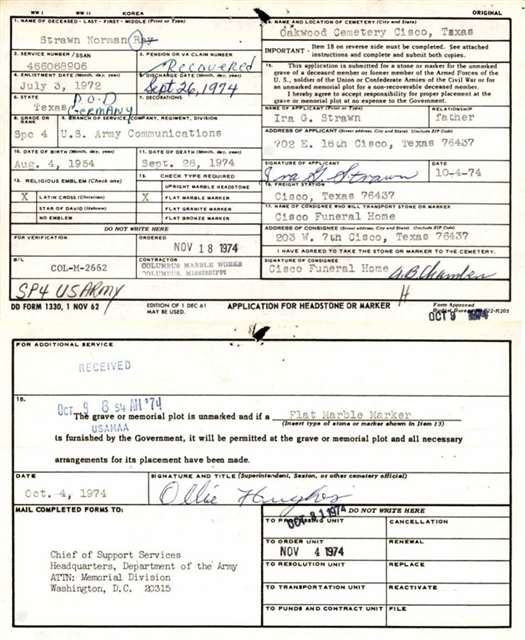 WW I WW II KOREA ORIGINAL
1. NAME OF DECEASED - LAST - FIRST - MIDDLE (Print or Type)
Strawn Norman Ray
14. NAME AND LOCATION OF CEMETERY (City and State)
Oakwood Cemetery Cisco, Texas
IMPORTANT - Item 18 on reverse side must be completed. See attached
instructions and complete and submit both copies.
2. SERVICE NUMBER/SSAN
466068906
3. PENSION OR VA CLAIM NUMBER
Recovered
15. This application is submitted for a stone or marker for the unmarked
grave of a deceased member or former member of the Armed Forces of the
U. S., soldier of the Union or Confederate Armies of the Civil War or for
an unmarked memorial plot for a non-recoverable deceased member.
I hereby agree to accept responsibility for proper placement at the
grave or memorial plot at no expense to the Government.
4. ENLISTMENT DATE (Month, day, year)
July 3, 1972
5. DISCHARGE DATE (Month, day, year)
Sept 26, 1974
6. STATE
Texas
P.O.D
GERMANY
7. DECORATIONS
NAME OF APPLICANT (Print or Type)
Ira G. Strawn
RELATIONSHIP
father
8. GRADE OR RANK
Spc 4
9. BRANCH OF SERVICE, COMPANY, REGIMENT, DIVISION
U.S. Army Communications
ADDRESS OF APPLICANT (Street address, City and State) (Include ZIP Code)
702 E. 16th Cisco, Texas 76437
10. DATE OF BIRTH (Month, day, year)
Aug. 4, 1954
11. DATE OF DEATH (Month, day, year)
Sept. 26, 1974
SIGNATURE OF APPLICANT
Ira G. Strawn
DATE
10-4-74
12. RELIGIOUS EMBLEM (Check one)
X LATIN CROSS (Christian)
STAR OF DAVID (Hebrew)
NO EMBLEM
13. CHECK TYPE REQUIRED
UPRIGHT MARBLE HEADSTONE
X FLAT MARBLE MARKER
FLAT GRANITE MARKER
FLAT BRONZE MARKER
16. FREIGHT STATION
Cisco, Texas 76437
17. NAME OF CONSIGNEE WHO WILL TRANSPORT STONE OR MARKER
Cisco Funeral Home
DO NOT WRITE HERE
ADDRESS OF CONSIGNEE (Street address, City and State) (Include ZIP Code)
203 W. 7th Cisco, Texas 76437
FOR VERIFICATION
ORDERED
NOV 18 1974
I HAVE AGREED TO TAKE THE STONE OR MARKER TO THE CEMETERY.
B/L
COL-M-2662
CONTRACTOR
COLUMBUS MARBLE WORKS
COLUMBUS, MISSISSIPPI
SIGNATURE OF CONSIGNEE
Cisco Funeral Home
SP4 US ARMY
H
DD FORM 1330, 1 NOV 62
EDITION OF 1 DEC 61
MAY BE USED.
APPLICATION FOR HEADSTONE OR MARKER
Form Approved
OCT 9 1974
FOR ADDITIONAL SERVICE
RECEIVED
18.
OCT 9 8 54 AM '74
USAMAA
The grave or memorial plot is unmarked and if a Flat Marble Marker
(Insert type of stone or marker shown in Item 13)
is furnished by the Government, it will be permitted at the grave or memorial plot and all necessary
arrangements for its placement have been made.
DATE
Oct. 4, 1974
SIGNATURE AND TITLE (Superintendent, Sexton, or other cemetery official)
Ollie Hughes
MAIL COMPLETED FORMS TO:
DO NOT WRITE HERE
Chief of Support Services
Headquarters, Department of the Army
ATTN: Memorial Division
Washington, D. C. 20315
TO PROCESSING UNIT
CANCELLATION
TO ORDER UNIT
NOV 4 1974
RENEWAL
TO RESOLUTION UNIT
REPLACE
TO TRANSPORTATION UNIT
REACTIVATE
TO FUNDS AND CONTRACT UNIT
FILE